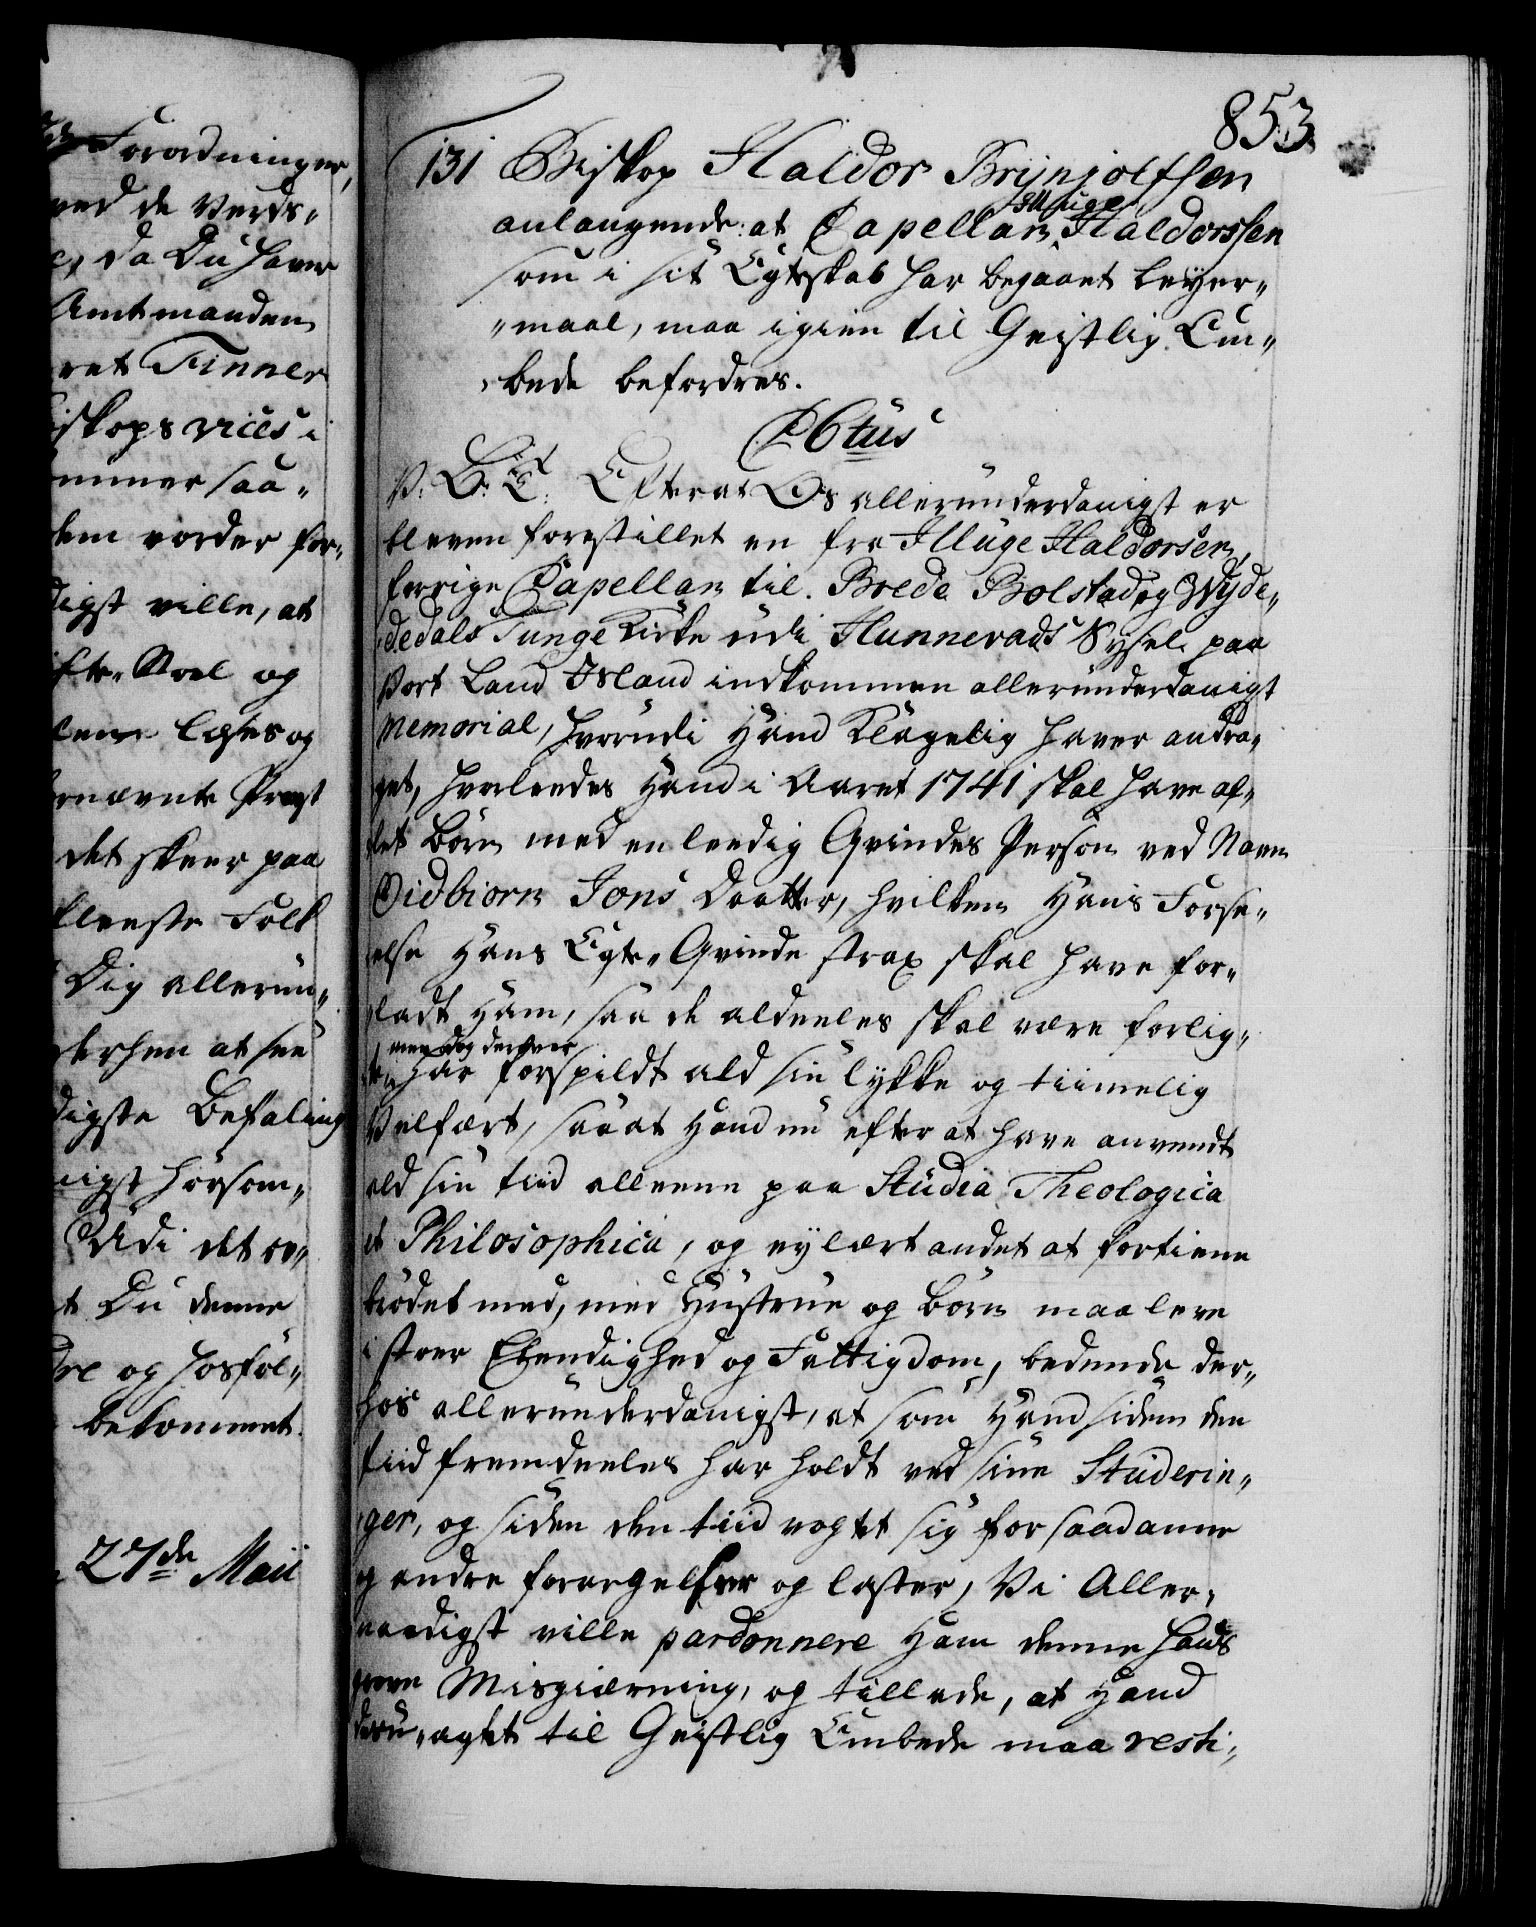 Forordninger,
ved de Verds-
da Du haver
Amtmanden
ret Finner
iskops vices i
ummer saa-
dem vorder for-
digst ville, at
fte-Stoel og
læses og
ernævnte Provst
det skeer paa
fleeste Folk
Dig allerun-
derhen at see
digste Befaling
nigst hørsom-
Udi det øv-
Du denne
dre og hosføl-
bekommet.
27de Maii
853
131 Biskop Haldor Brÿnjolfsen
anlangende: at Capellan Illuge Haldorssen
som i sit Egteskab har begaaet Leyer-
-maal, maa igien til Geistlig Em-
-bede befordres.
C6tus
V: G: T: Efterat Os allerunderdanigst er
bleven forestillet en fra Illuge Haldorsen,
forrige Capellan til Brede Bolstad og Wyde-
dedals Tunge Kirke udi Hunnevads Sysel paa
Vort Land Island indkommen allerunderdanigst
Memorial, hvorudi Hand Klagelig haver andra-
get, hvorleedes Hand i Aaret 1741 skal have af-
let Børn med en leedig Qvindes Person ved Navn
Oidbiorn Jons Daatter, hvilken Hans Forse-
else Hans Egte-Qvinde strax skal have for-
ladt Ham, saa de aldeeles skal være forlig-
te, men dog derover har forspildt ald sin lykke og tiimelig
Velfært, saa at Hand nu efter at have anvendt
ald sin tiid alleene paa Studia Theologica
et Philosophica, og ey lært andet at fortiene
brødet med, med Hustrue og børn maa leve
i stoer Elendighed og Fattigdom, bedende der-
hos allerunderdanigst, at som Hand siden den
tiid fremdeeles har holdt ved sine Studerin-
ger, og siden den tiid vogtet sig for saadanne
og andre forargelser og laster, Vi Aller-
naadigst ville pardonnere Ham denne hans
grove Misgierning, og tillade, at Hand
deru-agtet til Geistlig Embede maa resti-